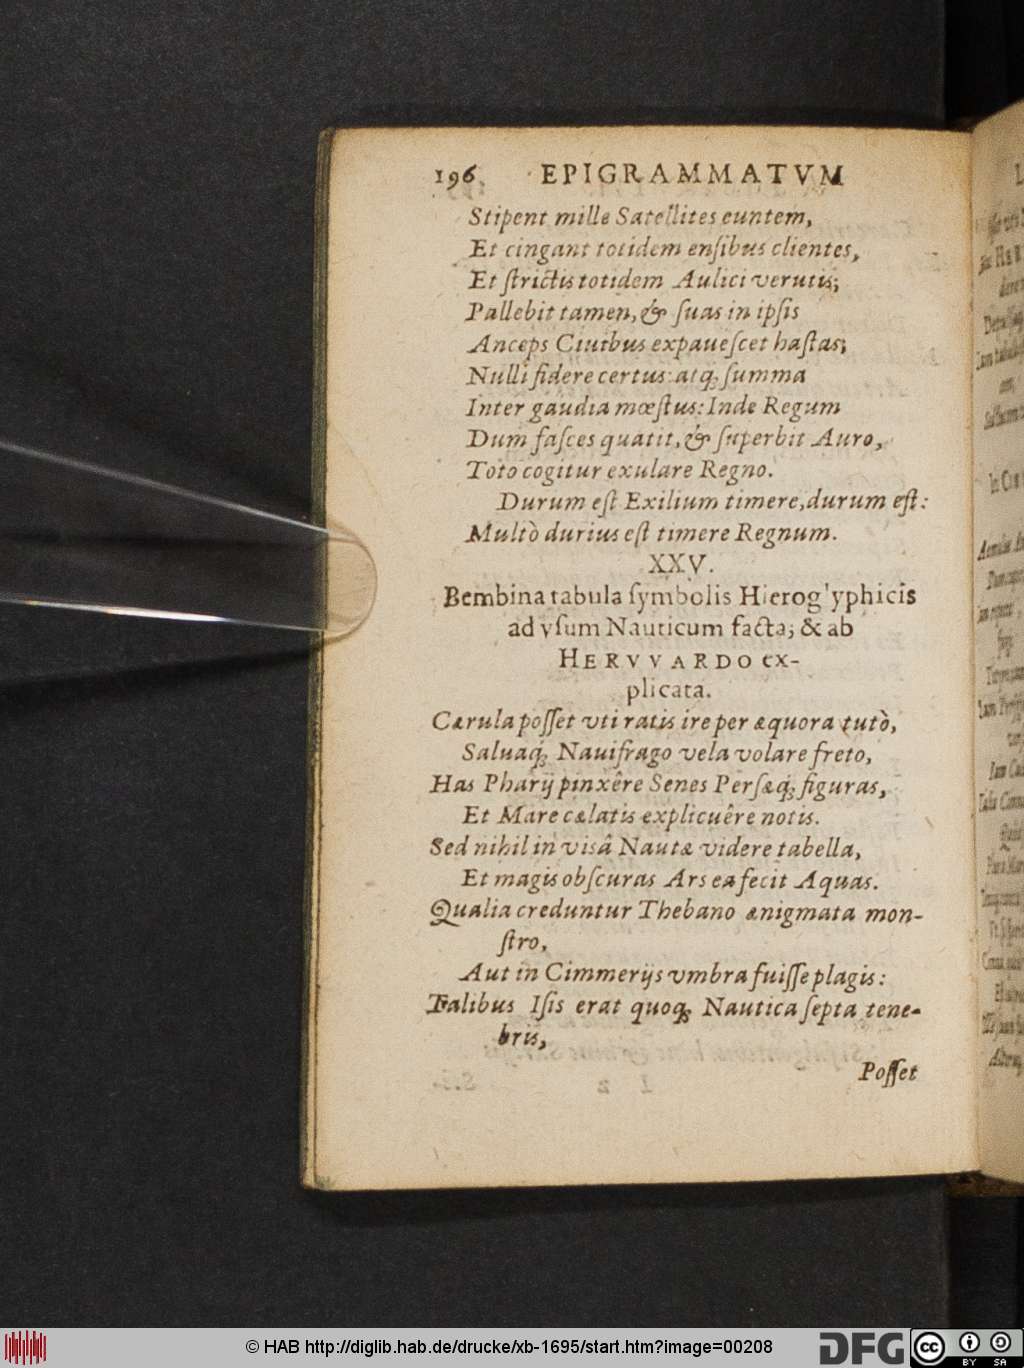 196 EPIGRAMMATVM
Stipent mille Satellites euntem,
Et cingant totidem enſibus clientes,
Et ſtrictis totidem Aulici verutis;
Pallebit tamen, & ſuas in ipſis
Anceps Ciuibus expaueſcet haſtas;
Nulli fidere certus: atq́; ſumma
Inter gaudia mœſtus: Inde Regum
Dum faſces quatit, & ſuperbit Auro,
Toto cogitur exulare Regno.
Durum eſt Exilium timere, durum eſt:
Multò durius eſt timere Regnum.
XXV.
Bembina tabula ſymbolis Hieroglyphicis
ad vſum Nauticum facta; & ab
HERVVARDO ex-
plicata.
Cærula poſſet vti ratis ire per æquora tutò,
Saluaq́; Nauifrago vela volare freto,
Has Pharij pinxêre Senes Perſæq́; figuras,
Et Mare cælatis explicuêre notis.
Sed nihil in visâ Nautæ videre tabella,
Et magis obſcuras Ars ea fecit Aquas.
Qualia creduntur Thebano ænigmata mon-
ſtro,
Aut in Cimmerijs vmbra fuiſſe plagis:
Talibus Iſis erat quoq́; Nautica ſepta tene-
bris,
Poſſet
© HAB http://diglib.hab.de/drucke/xb-1695/start.htm?image=00208
DFG
cc
BY SA